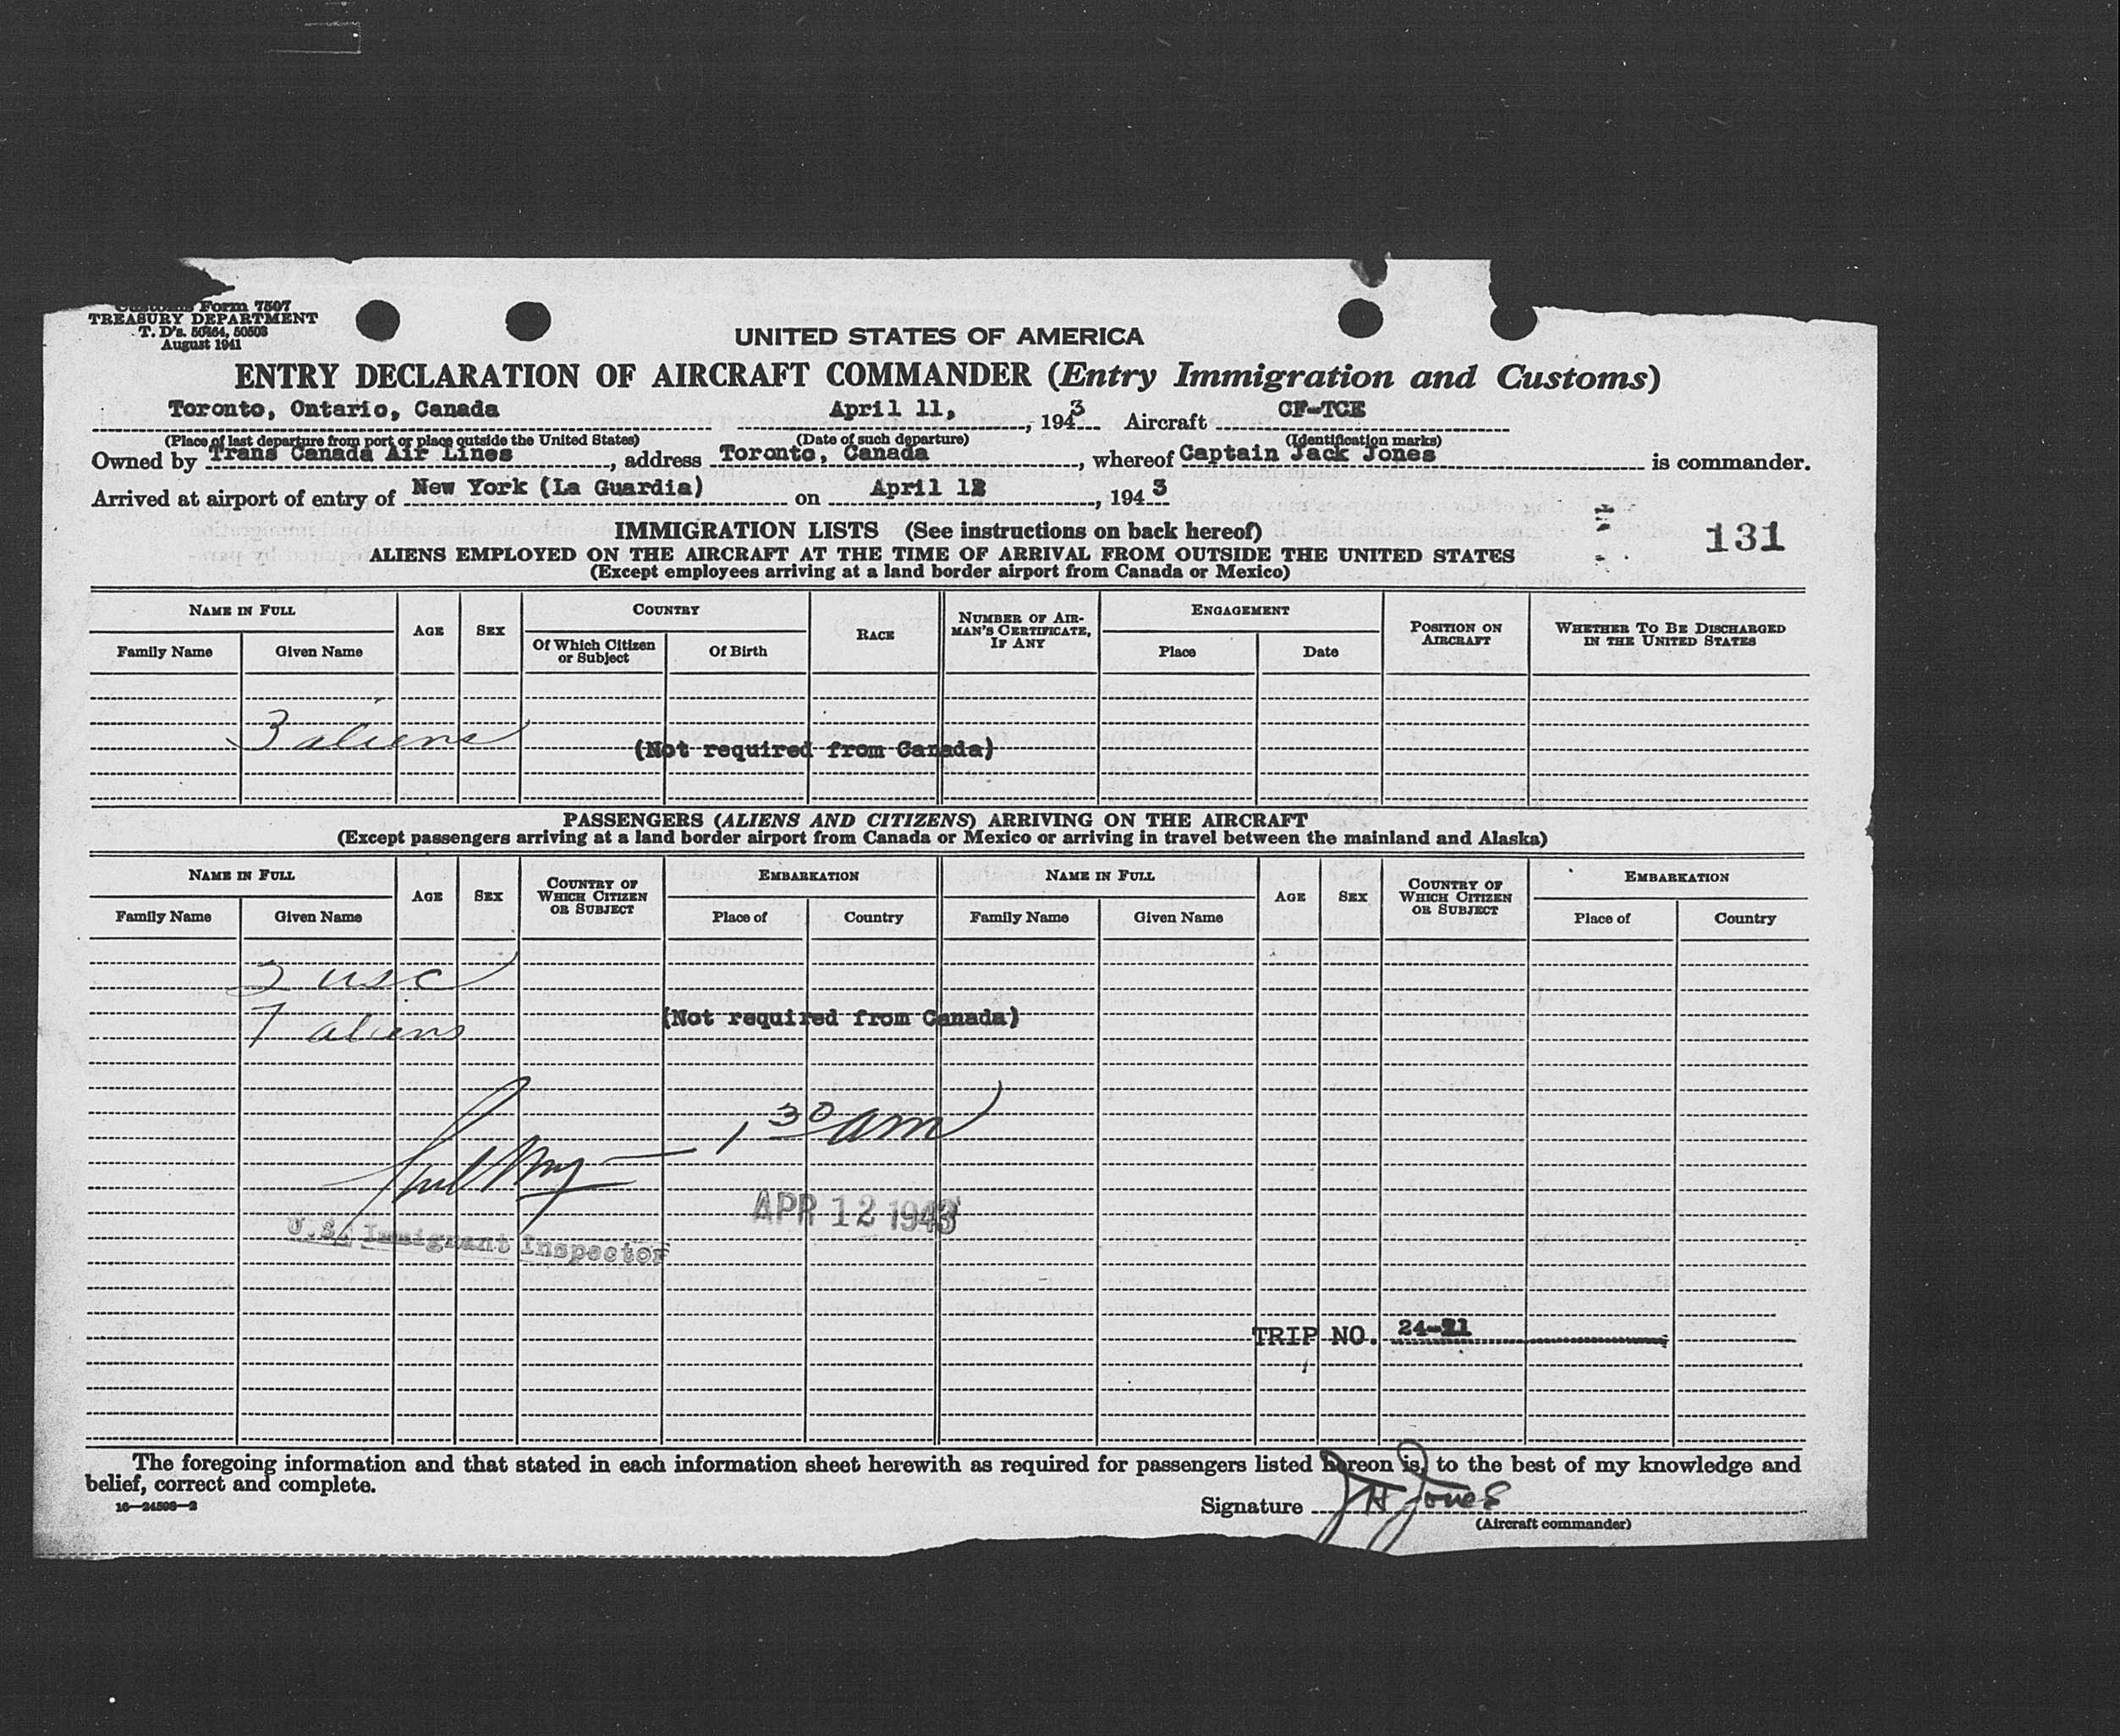 Customs Form 7507
TREASURY DEPARTMENT
T. D's. 50464, 50503
August 1941
UNITED STATES OF AMERICA
ENTRY DECLARATION OF AIRCRAFT COMMANDER (Entry Immigration and Customs)
Toronto, Ontario, Canada April 11, 1943 Aircraft CF-TCE
(Place of last departure from port or place outside the United States) (Date of such departure) (Identification marks)
Owned by Trans Canada Air Lines, address Toronto, Canada, whereof Captain Jack Jones is commander.
Arrived at airport of entry of New York (La Guardia) on April 12, 1943
IMMIGRATION LISTS (See instructions on back hereof)
131
ALIENS EMPLOYED ON THE AIRCRAFT AT THE TIME OF ARRIVAL FROM OUTSIDE THE UNITED STATES
(Except employees arriving at a land border airport from Canada or Mexico)
NAME IN FULL AGE SEX COUNTRY RACE NUMBER OF AIRMAN'S CERTIFICATE, IF ANY ENGAGEMENT POSITION ON AIRCRAFT WHETHER TO BE DISCHARGED IN THE UNITED STATES
Family Name Given Name Of Which Citizen or Subject Of Birth Place Date
3 aliens
(Not required from Canada)
PASSENGERS (ALIENS AND CITIZENS) ARRIVING ON THE AIRCRAFT
(Except passengers arriving at a land border airport from Canada or Mexico or arriving in travel between the mainland and Alaska)
NAME IN FULL AGE SEX COUNTRY OF WHICH CITIZEN OR SUBJECT EMBARKATION NAME IN FULL AGE SEX COUNTRY OF WHICH CITIZEN OR SUBJECT EMBARKATION
Family Name Given Name Place of Country Family Name Given Name Place of Country
2 usc
7 aliens
(Not required from Canada)
1 30 am
APR 12 1943
U.S. Immigrant Inspector
TRIP NO. 24-21
The foregoing information and that stated in each information sheet herewith as required for passengers listed hereon is, to the best of my knowledge and
belief, correct and complete.
16—24598-2
Signature J H Jones
(Aircraft commander)